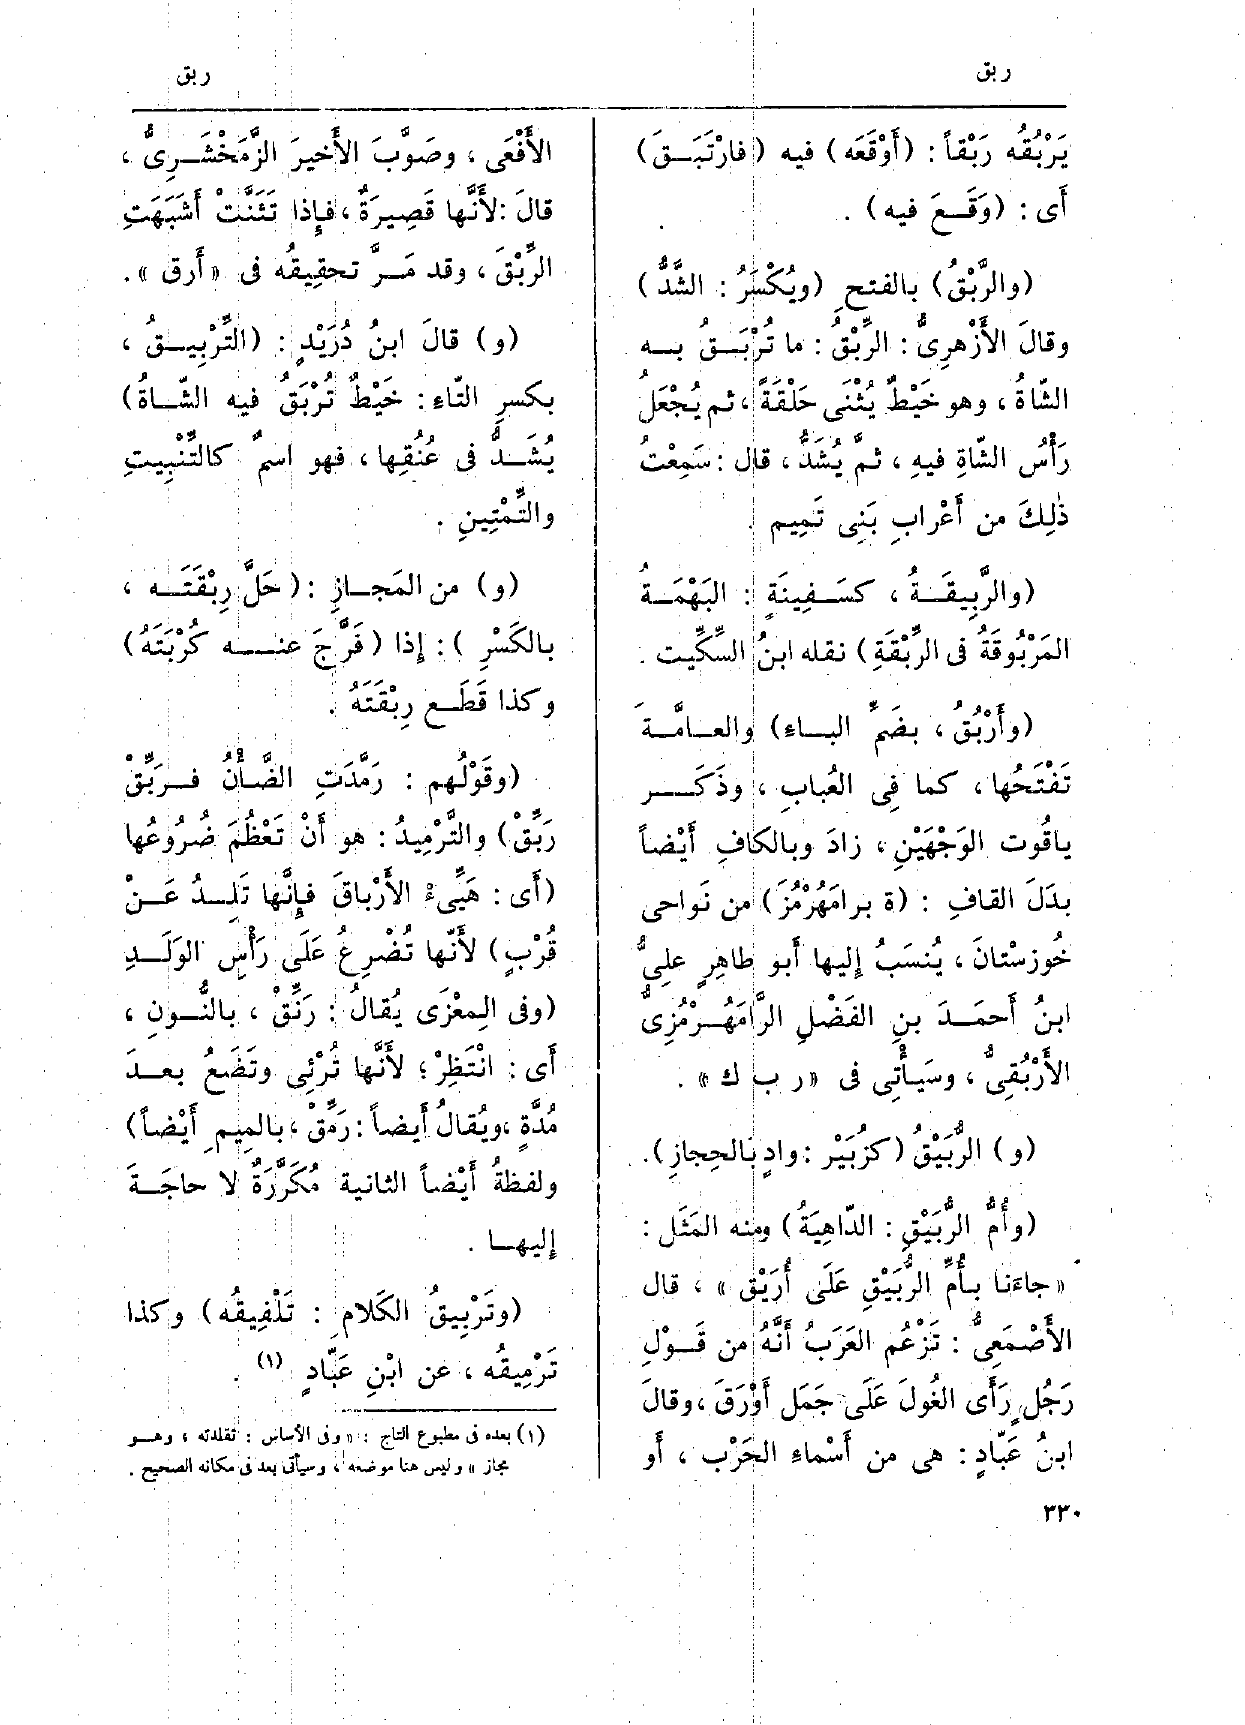 ربق
ربق
يَرْبُقُه رَبْقاً : (أَوْقَعَه) فيه (فارْتَبَـقَ)
أى : (وَقَـعَ فيه) .
(والرَّبْقُ) بالفتحِ (ويُكْسَرُ : الشَّدُّ)
وقالَ الأَزْهرِىُّ : الرِّبْقُ : ما تُرْبَـقُ بـه
الشّاةُ ، وهو خَيْطٌ يُثْنَى حَلْقَةً ، ثم يُجْعَلُ
رَأْسُ الشّاةِ فيهِ ، ثمَّ يُشَدُّ ، قال : سَمِعْتُ
ذٰلِكَ من أَعْرابِ بَنِى تَمِيم .
(والرَّبِيقَـةُ ، كسَـفِينَةٍ : البَهْمَـةُ
المَرْبُوقَةُ فى الرِّبْقَةِ) نقله ابنُ السِّكِّيت .
(وأَرْبُقُ ، بضَمِّ البـاء) والعـامَّـةَ
تَفْتَحُها ، كما فِى العُبابِ ، وذَكَـر
ياقُوت الوَجْهَيْنِ ، زادَ وبالكافِ أَيْضاً
بدَلَ القافِ : (ة برامَهُرْمُزَ) من نَواحى
خُوزِسْتانَ ، يُنسَبُ إليها أبو طاهِرٍ علِىُّ
ابنُ أَحمَـدَ بنِ الفَضْلِ الرَّامَهُـرْمُزِىُّ
الأَرْبُقِىُّ ، وسَيأْتِى فى «ر ب ك» .
(و) الرُّبَيْقُ (كزُبَيْر : وادٍ بالحِجازِ).
(وأُمُّ الرُّبَيْقِ : الدّاهِيَةُ) ومنه المَثَل :
«جاءَنا بـأُمِّ الرُّبَيْقِ عَلَى أُرَيْق» ، قال
الأَصْمَعِىُّ : تَزْعُم العَرَبُ أَنَّهُ من قَـوْلِ
رَجُلٍ رَأَى الغُولَ عَلَى جَمَل أَوْرَقَ ، وقالَ
ابنُ عَبّادٍ : هى من أَسْماءِ الحَرْب ، أو
الأَفْعَى ، وصَوَّبَ الأَخيرَ الزَّمَخْشَـرِىُّ ،
قالَ : لأَنَّها قَصِيرَةٌ ، فإِذا تَثَنَّتْ أَشْبَهَتِ
الرِّبْقَ ، وقد مَـرَّ تحقِيقُه فى «أرق» .
(و) قالَ ابنُ دُرَيْدٍ : (التِّرْبِيـقُ ،
بكسرِ التّاءِ : خَيْطٌ تُرْبَقُ فيه الشّـاةُ)
يُشَـدُّ فى عُنُقِها ، فهو اسمٌ كالتِّنْبِيتِ
والتِّمْتِينِ .
(و) من المَجـازِ : (حَلَّ رِبْقَتَـه ،
بالكَسْرِ) : إذا (فَرَّجَ عنـه كُرْبَتَهُ)
وكذا قَطَـع رِبْقَتَهُ .
(وقَوْلُهم : رَمَّدَتِ الضَّـأْنُ فـرَبِّقْ
رَبِّقْ) والتَّرْمِيدُ : هو أَنْ تَعْظُمَ ضُرُوعُها
(أَى : هَيِّىءْ الأَرْباقَ فإِنَّها تَلِـدُ عَـنْ
قُرْبٍ) لأَنّها تُضْرِعُ عَلَى رَأْسِ الوَلَـدِ
(وفى المِعْزَى يُقالُ : رَنِّقْ ، بالنُّـونِ ،
أَى : انْتَظِرْ ؛ لأَنَّها تُرْئِى وتَضَعُ بعـدَ
مُدَّةٍ ، ويُقالُ أَيضاً : رَمِّقْ ، بالمِيمِ أَيْضاً)
ولفظةُ أَيْضاً الثانية مُكَرَّرَةٌ لا حاجَـةَ
إليهـا .
(وتَرْبِيقُ الكَلامِ : تَلْفِيقُه) وكذا
تَرْمِيقُه ، عن ابْنِ عَبّادٍ (١) .
(١) بعده فى مطبوع التاج : «وفى الأساس : تقلدته ، وهـو
مجاز» وليس هنا موضعه ، وسيأتى بعد فى مكانه الصحيح .
٣٣٠